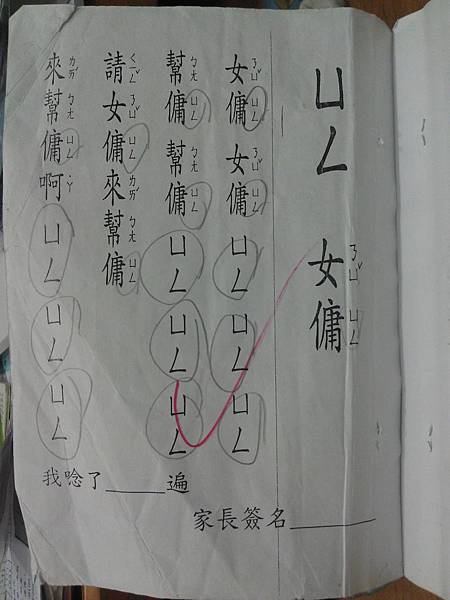 ㄩㄥ 女ㄋㄩˇ傭ㄩㄥ
女ㄋㄩˇ傭ㄩㄥ 女ㄋㄩˇ傭ㄩㄥ ㄩㄥ ㄩㄥ ㄩㄥ
幫ㄅㄤ傭ㄩㄥ 幫ㄅㄤ傭ㄩㄥ ㄩㄥ ㄩㄥ ㄩㄥ
請ㄑㄧㄥˇ女ㄋㄩˇ傭ㄩㄥ來ㄌㄞˊ幫ㄅㄤ傭ㄩㄥ
來ㄌㄞˊ幫ㄅㄤ傭ㄩㄥ啊˙ㄚ ㄩㄥ ㄩㄥ ㄩㄥ
我唸了______遍
家長簽名________